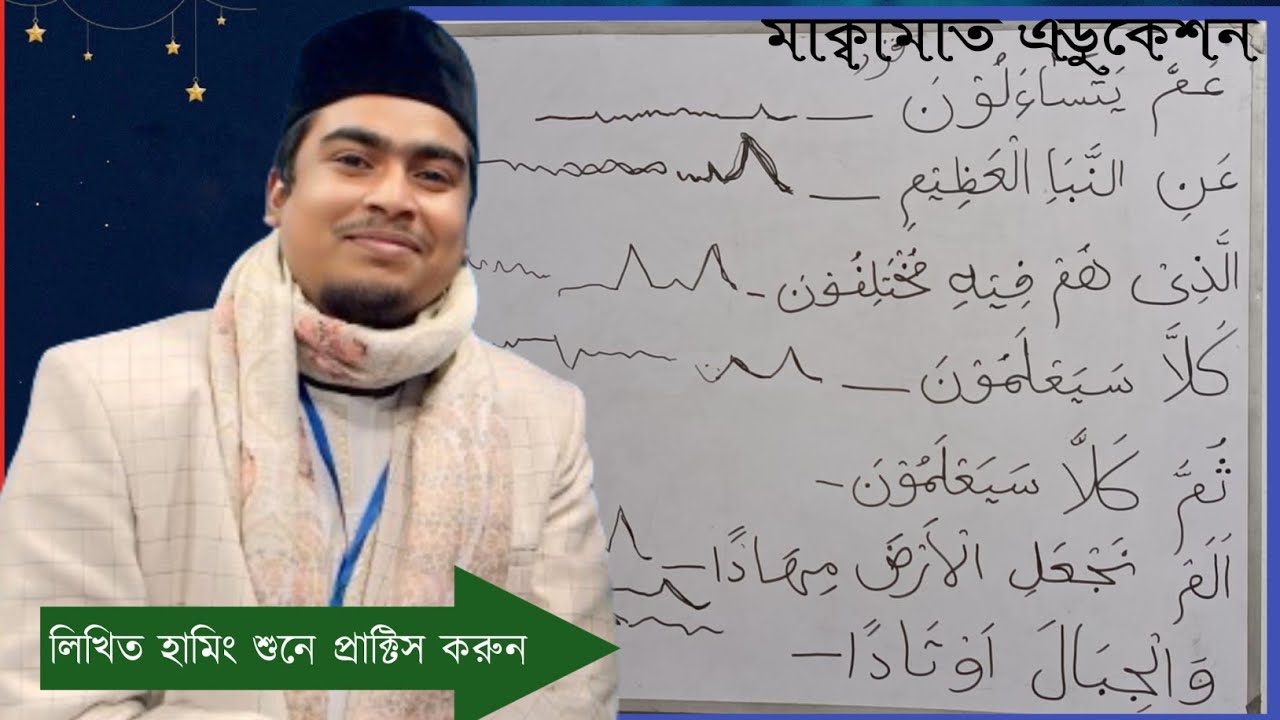 মাক্বামাত এডুকেশন
عَمَّ يَتَسَاءَلُوْنَ
عَنِ النَّبَاِ الْعَظِيْمِ
الَّذِىْ هُمْ فِيْهِ مُخْتَلِفُوْنَ
كَلَّا سَيَعْلَمُوْنَ
ثُمَّ كَلَّا سَيَعْلَمُوْنَ
اَلَمْ نَجْعَلِ الْاَرْضَ مِهَادًا
وَالْجِبَالَ اَوْتَادًا
লিখিত হামিং শুনে প্রাক্টিস করুন